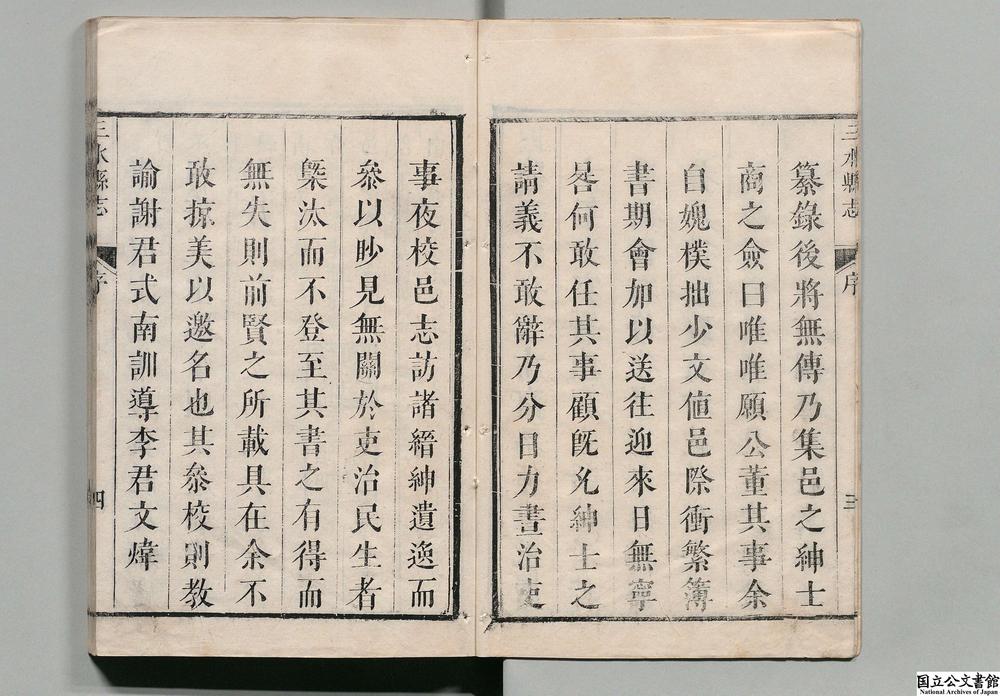 三水縣志 序 三
纂錄後將無傳乃集邑之紳士
商之僉曰唯唯願公董其事余
自媿樸拙少文値邑際衝繁簿
書期會加以送往迎來日無寧
晷何敢任其事顧旣允紳士之
請義不敢辭乃分日力晝治吏
事夜校邑志訪諸縉紳遺逸而
叅以眇見無關於吏治民生者
槩汰而不登至其書之有得而
無失則前賢之所載具在余不
敢掠美以邀名也其叅校則教
諭謝君式南訓導李君文煒
三水縣志 序 四
国立公文書館
National Archives of Japan